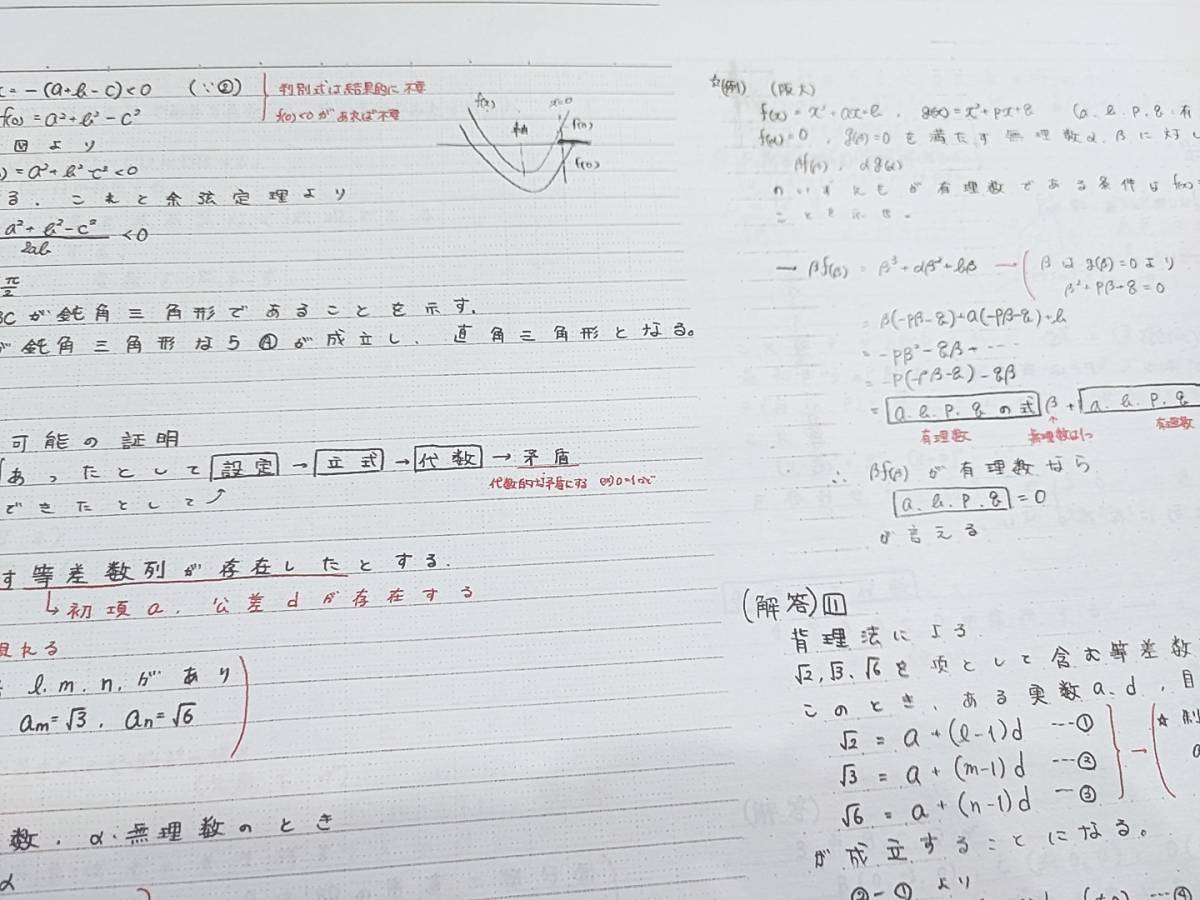 c = -(a+b-c)<0 (∵②)
判別式は結果的に不要
f(0)=a²+b²-c²
f(0)<0があれば不要
図より
)=a²+b²-c²<0
る、これと余弦定理より
a²+b²-c²
2ab
<0
π
2
BCが鈍角三角形であることを示す。
が鈍角三角形なら④が成立し、直角三角形となる。
f(x)
軸
x=0
f(0)
f(0)
可能の証明
あったとして 設定 → 立式 → 代数 → 矛盾
できたとして
代数的な矛盾にする
す等差数列が存在したとする。
→初項a、公差dが存在する
現れる
l.m.n.があり
am=√3, an=√6
数、α:無理数のとき
α
☆(例) (阪大)
f(x)=x²+ax+b, g(x)=x²+px+q (a.b.p.q:有
f(α)=0, g(β)=0を満たす無理数α、βに対
βf(β), αg(α)
のいずれもが有理数である条件はf(x)
ことを示せ。
→ βf(β) = β³+aβ²+bβ → βはg(β)=0より
β²+pβ+q=0
= β(-pβ-q)+a(-pβ-q)+b
= -pβ²-qβ+……
= -p(-pβ-q)-qβ
= a.b.p.qの式 β + a.b.p.q
有理数 無理数は1つ 有理数
∴ βf(β)が有理数なら
a.b.p.q =0
が言える
(解答)[1]
背理法による
√2,√3,√6を項として含む等差数
このとき、ある実数a、d、自
√2 = a+(l-1)d …①
√3 = a+(m-1)d …②
√6 = a+(n-1)d …③
→ ☆
a
が成立することになる。
②-①より
…④